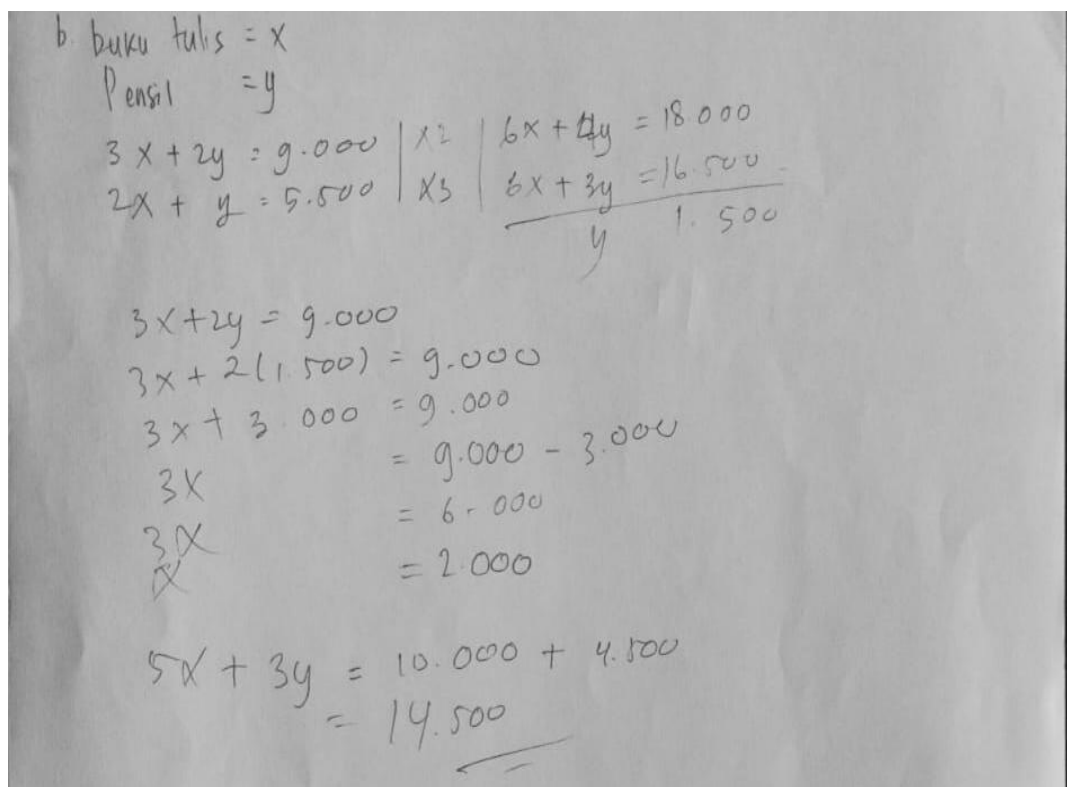 b. buku tulis = x
Pensil = y
3x + 2y = 9.000 | x2 | 6x + 4y = 18.000
2x + y = 5.500 | x3 | 6x + 3y = 16.500 -
y 1.500
3x + 2y = 9.000
3x + 2(1.500) = 9.000
3x + 3.000 = 9.000
3x = 9.000 - 3.000
3x = 6.000
x = 2.000
5x + 3y = 10.000 + 4.500
= 14.500